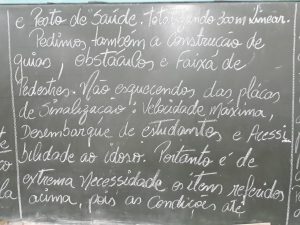 e Posto de Saúde. Totalizando 300m linear.
Pedimos também a construcção de
guias, obstáculos e Faixa de
Pedestres. Não esquecendo das plácas
de Sinalização: Velocidade Maxima,
Desembarque de estudantes e Acessi
bilidade ao idoso. Portanto é de
extrema necessidade os itens referidos
acima, pois as condições até